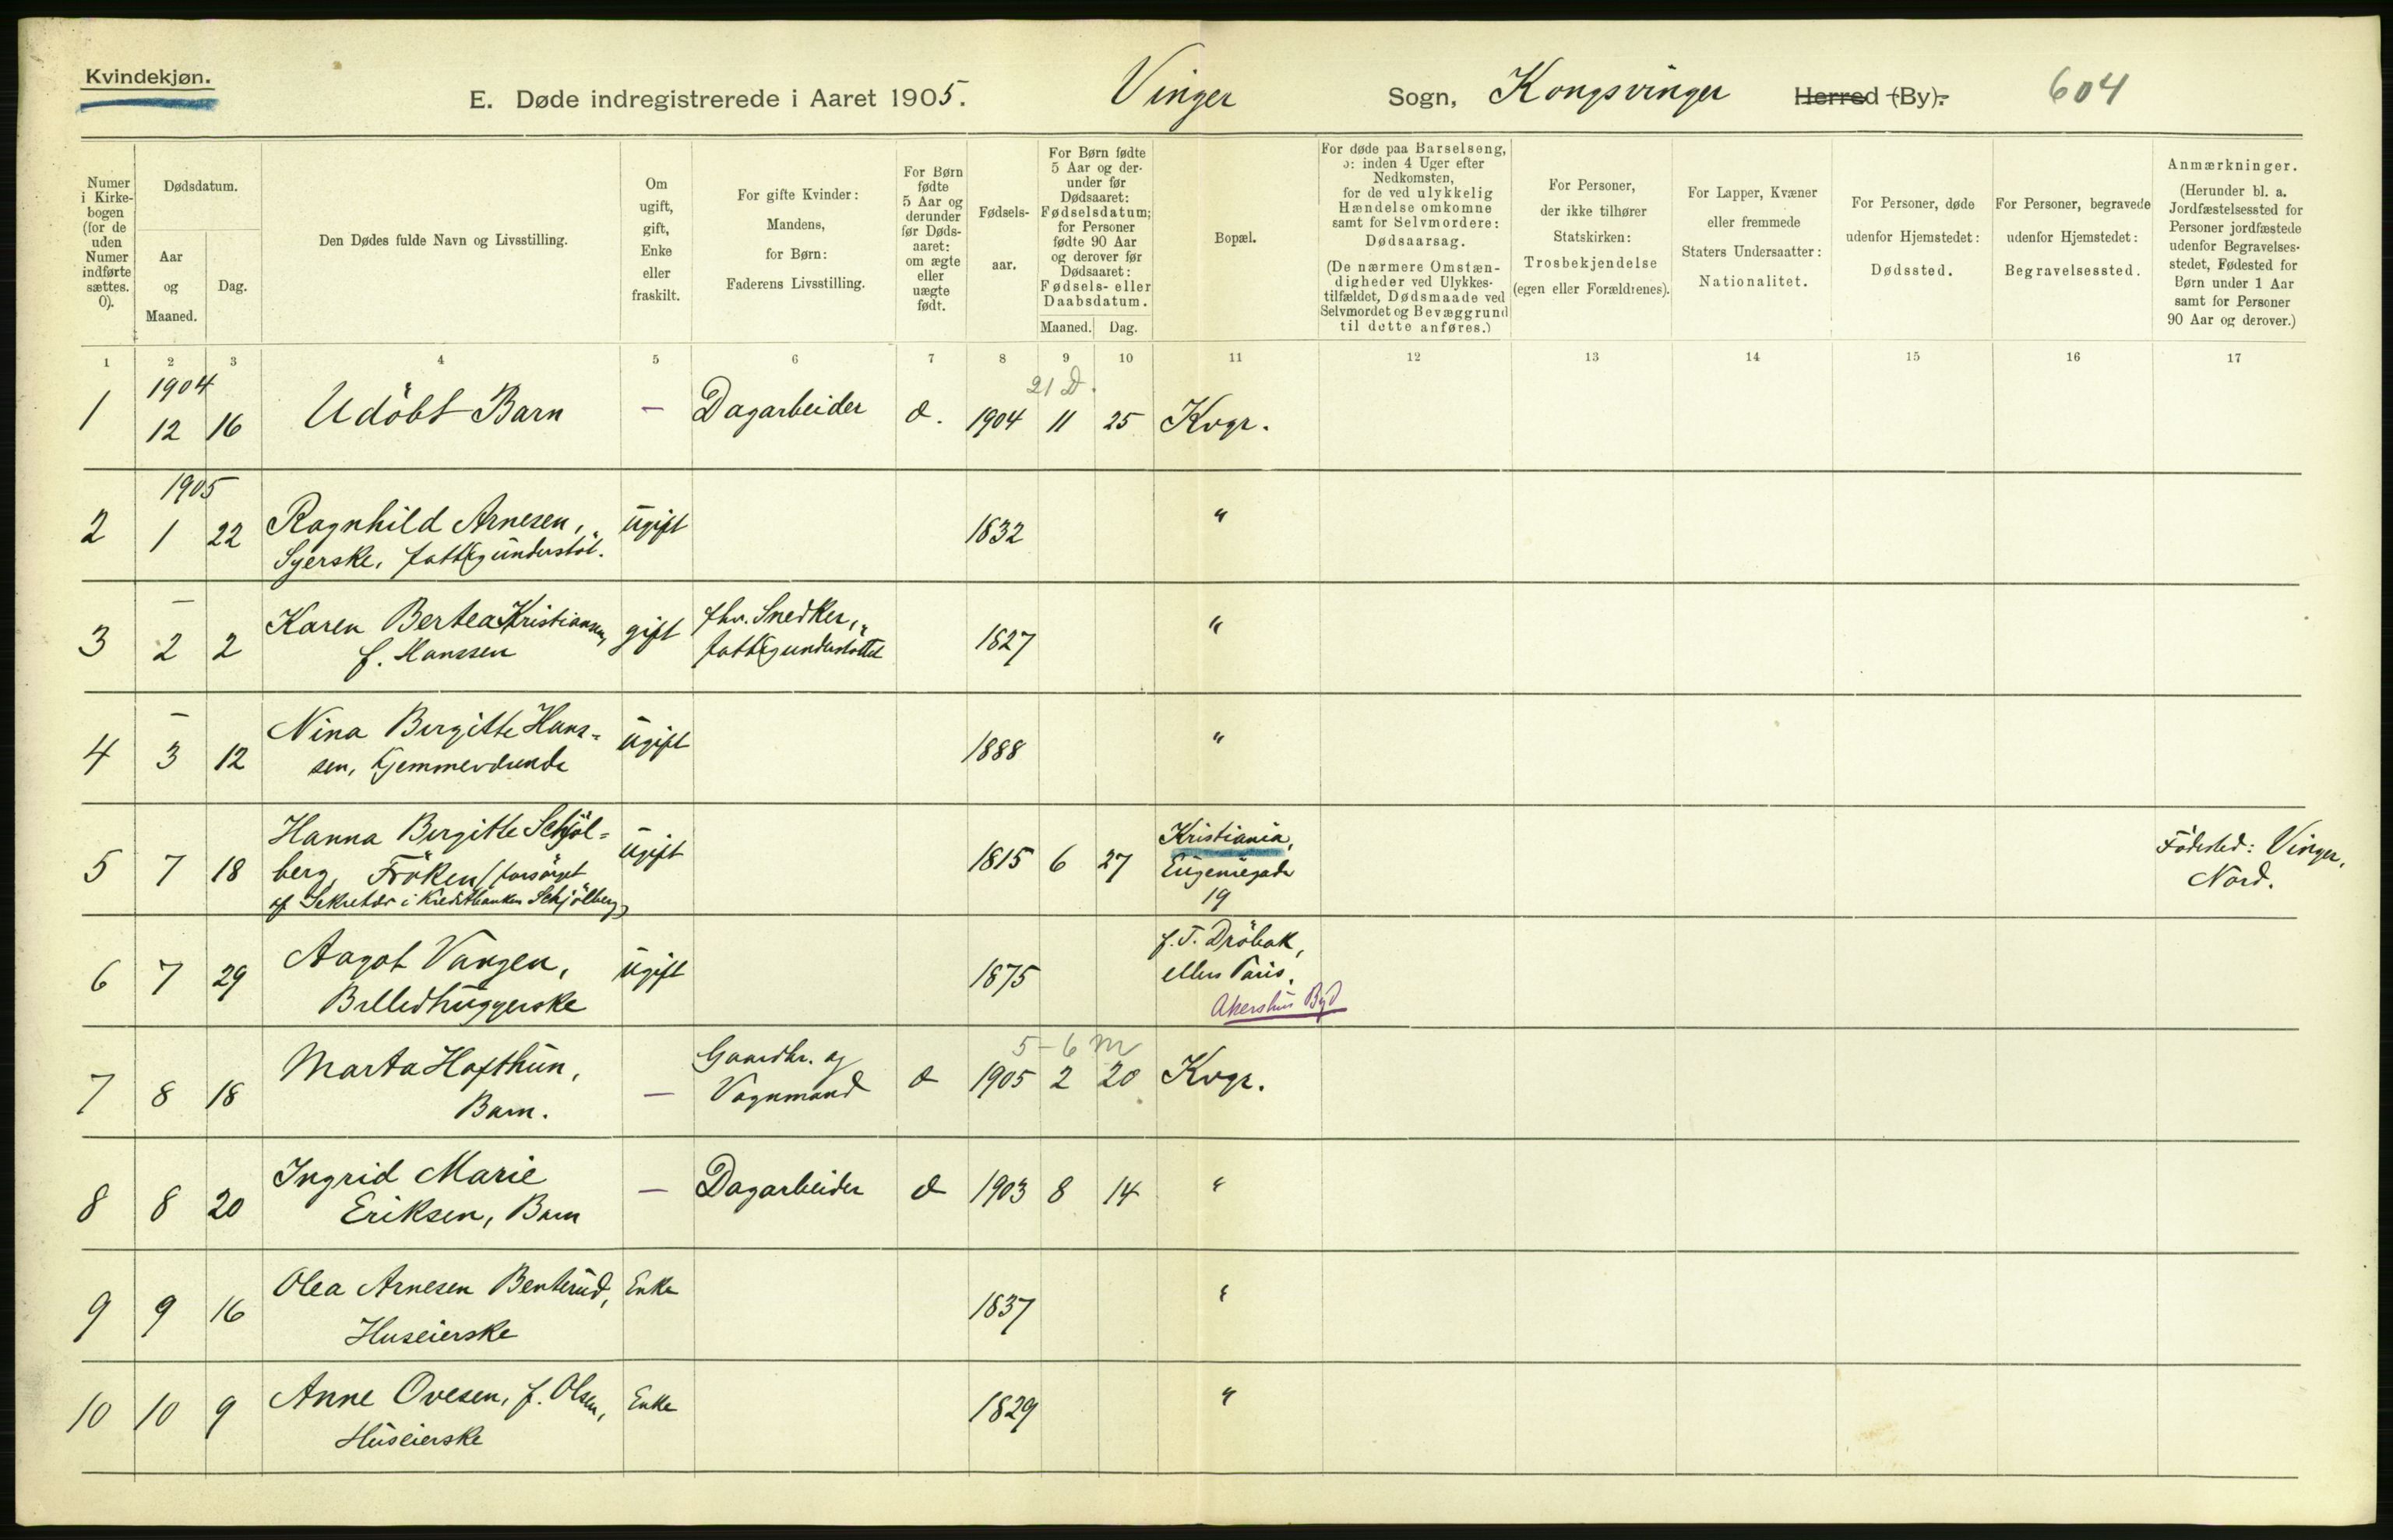 Kvindekjøn.
E. Døde indregistrerede i Aaret 1905. Vinger Sogn, Kongsvinger Herred (By). 604
Numer i Kirkebogen (for de uden Numer indførte sættes. 0).
Dødsdatum.
Aar og Maaned.
Dag.
Den Dødes fulde Navn og Livsstilling.
Om ugift, gift, Enke eller fraskilt.
For gifte Kvinder: Mandens, for Børn: Faderens Livsstilling.
For Børn fødte 5 Aar og derunder før Dødsaaret: om ægte eller uægte født.
Fødselsaar.
For Børn fødte 5 Aar og derunder før Dødsaaret: Fødselsdatum; for Personer fødte 90 Aar og derover før Dødsaaret: Fødsels- eller Daabsdatum.
Maaned. Dag.
Bopæl.
For døde paa Barselseng, ɔ: inden 4 Uger efter Nedkomsten, for de ved ulykkelig Hændelse omkomne samt for Selvmordere: Dødsaarsag.
(De nærmere Omstændigheder ved Ulykkestilfældet, Dødsmaade ved Selvmordet og Bevæggrund til dette anføres.)
For Personer, der ikke tilhører Statskirken: Trosbekjendelse (egen eller Forældrenes).
For Lapper, Kvæner eller fremmede Staters Undersaatter: Nationalitet.
For Personer, døde udenfor Hjemstedet: Dødssted.
For Personer, begravede udenfor Hjemstedet: Begravelsessted.
Anmærkninger.
(Herunder bl. a. Jordfæstelsessted for Personer jordfæstede udenfor Begravelsesstedet, Fødested for Børn under 1 Aar samt for Personer 90 Aar og derover.)
1 2 3 4 5 6 7 8 9 10 11 12 13 14 15 16 17
1904 21 D.
1 12 16 Udöbt Barn — Dagarbeider d. 1904 11 25 Kvgr.
1905
2 1 22 Ragnhild Arnesen, ugift 1832 "
Syerske, fattigunderstöt.
—
3 2 2 Karen Bertea Kristiansen, gift fhv. Snedker, 1827 "
f. Hanssen fattigunderstöttet
—
4 3 12 Nina Birgitte Hans= ugift 1888 "
sen, hjemmeværende
5 7 18 Hanna Birgitte Schjöl= ugift 1815 6 27 Kristiania, Födested: Vinger,
berg, Fröken (forsörget Eugeniegade Nord.
af Sekretær i Kreditbanken Schjölberg) 19
6 7 29 Aagot Vangen, ugift 1875 f. T. Dröbak,
Billedhuggerske ellers Paris.
Akershus Byd
5-6 m
7 8 18 Marta Hafthun, — Gaardbr. og d 1905 2 20 Kvgr.
Barn. Vognmand
8 8 20 Ingrid Marie — Dagarbeider d 1903 8 14 "
Eriksen, Barn
9 9 16 Olea Arnesen Benterud, Enke 1837 "
Huseierske
10 10 9 Anne Ovesen, f. Olsen, Enke 1829 "
Huseierske